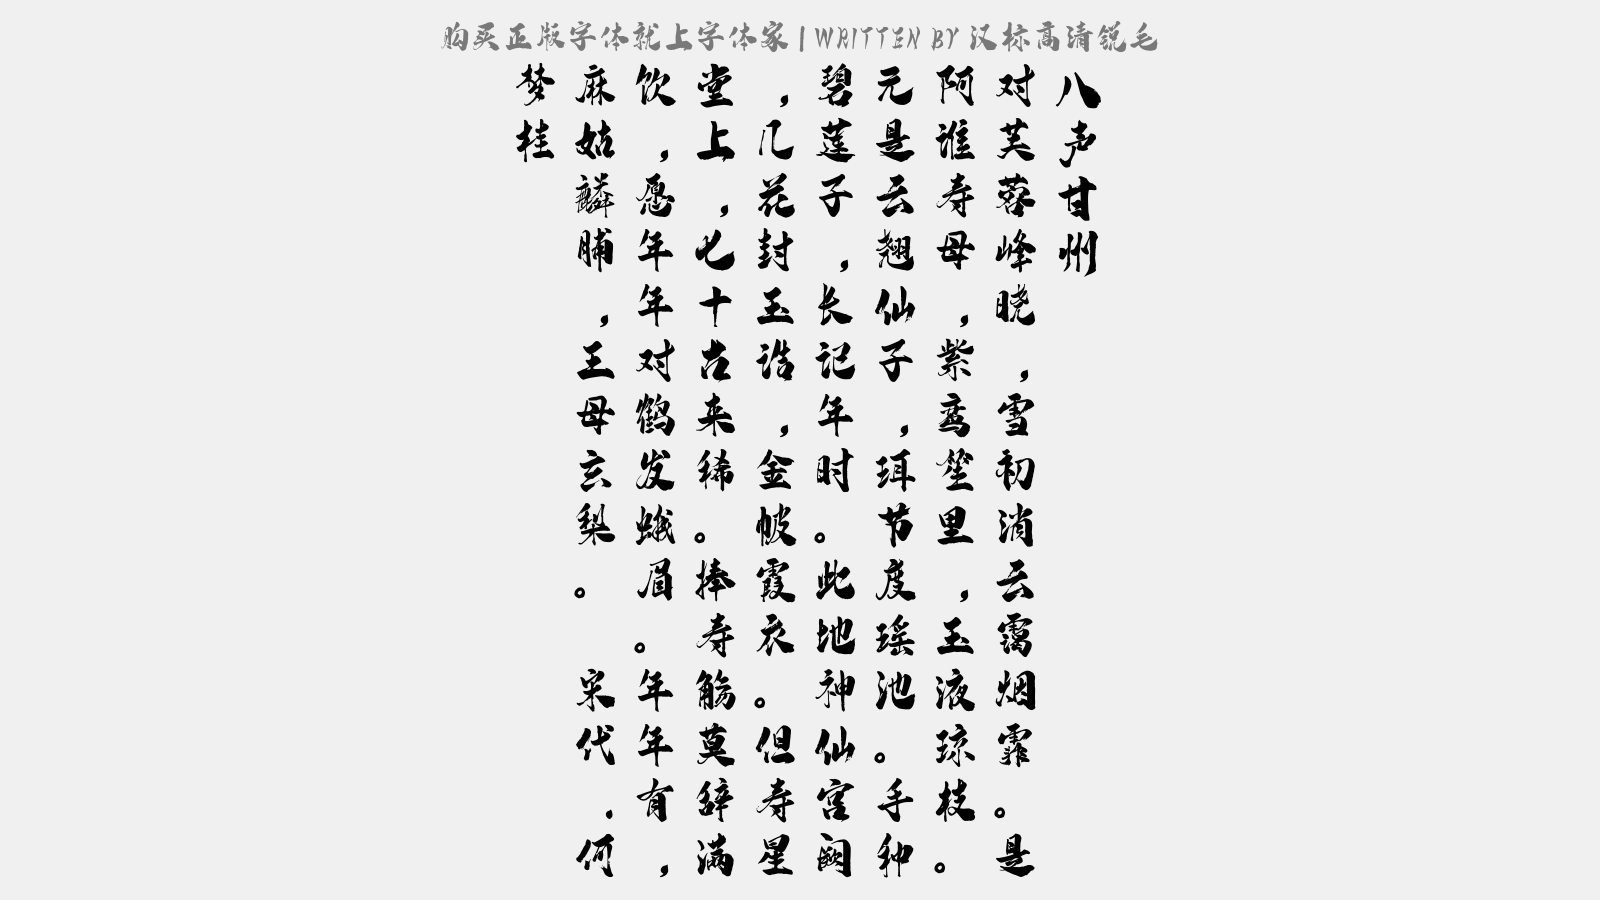 购买正版字体就上字体家 | WRITTEN BY 汉标高清锐毛
八声甘州
对芙蓉峰晓，雪初消云霭烟霏。是
阿谁寿母，紫鸾笙里，玉液琼枝。
元是云翘仙子，珥节度瑶池。手种
碧莲子，长记年时。此地神仙宫阙
，几花封玉诰，金帔霞衣。但寿星
堂上，七十古来稀。捧寿觞莫辞满
饮，愿年年对鹤发蛾眉。年年有，
麻姑麟脯，王母玄梨。 宋代．何
梦桂